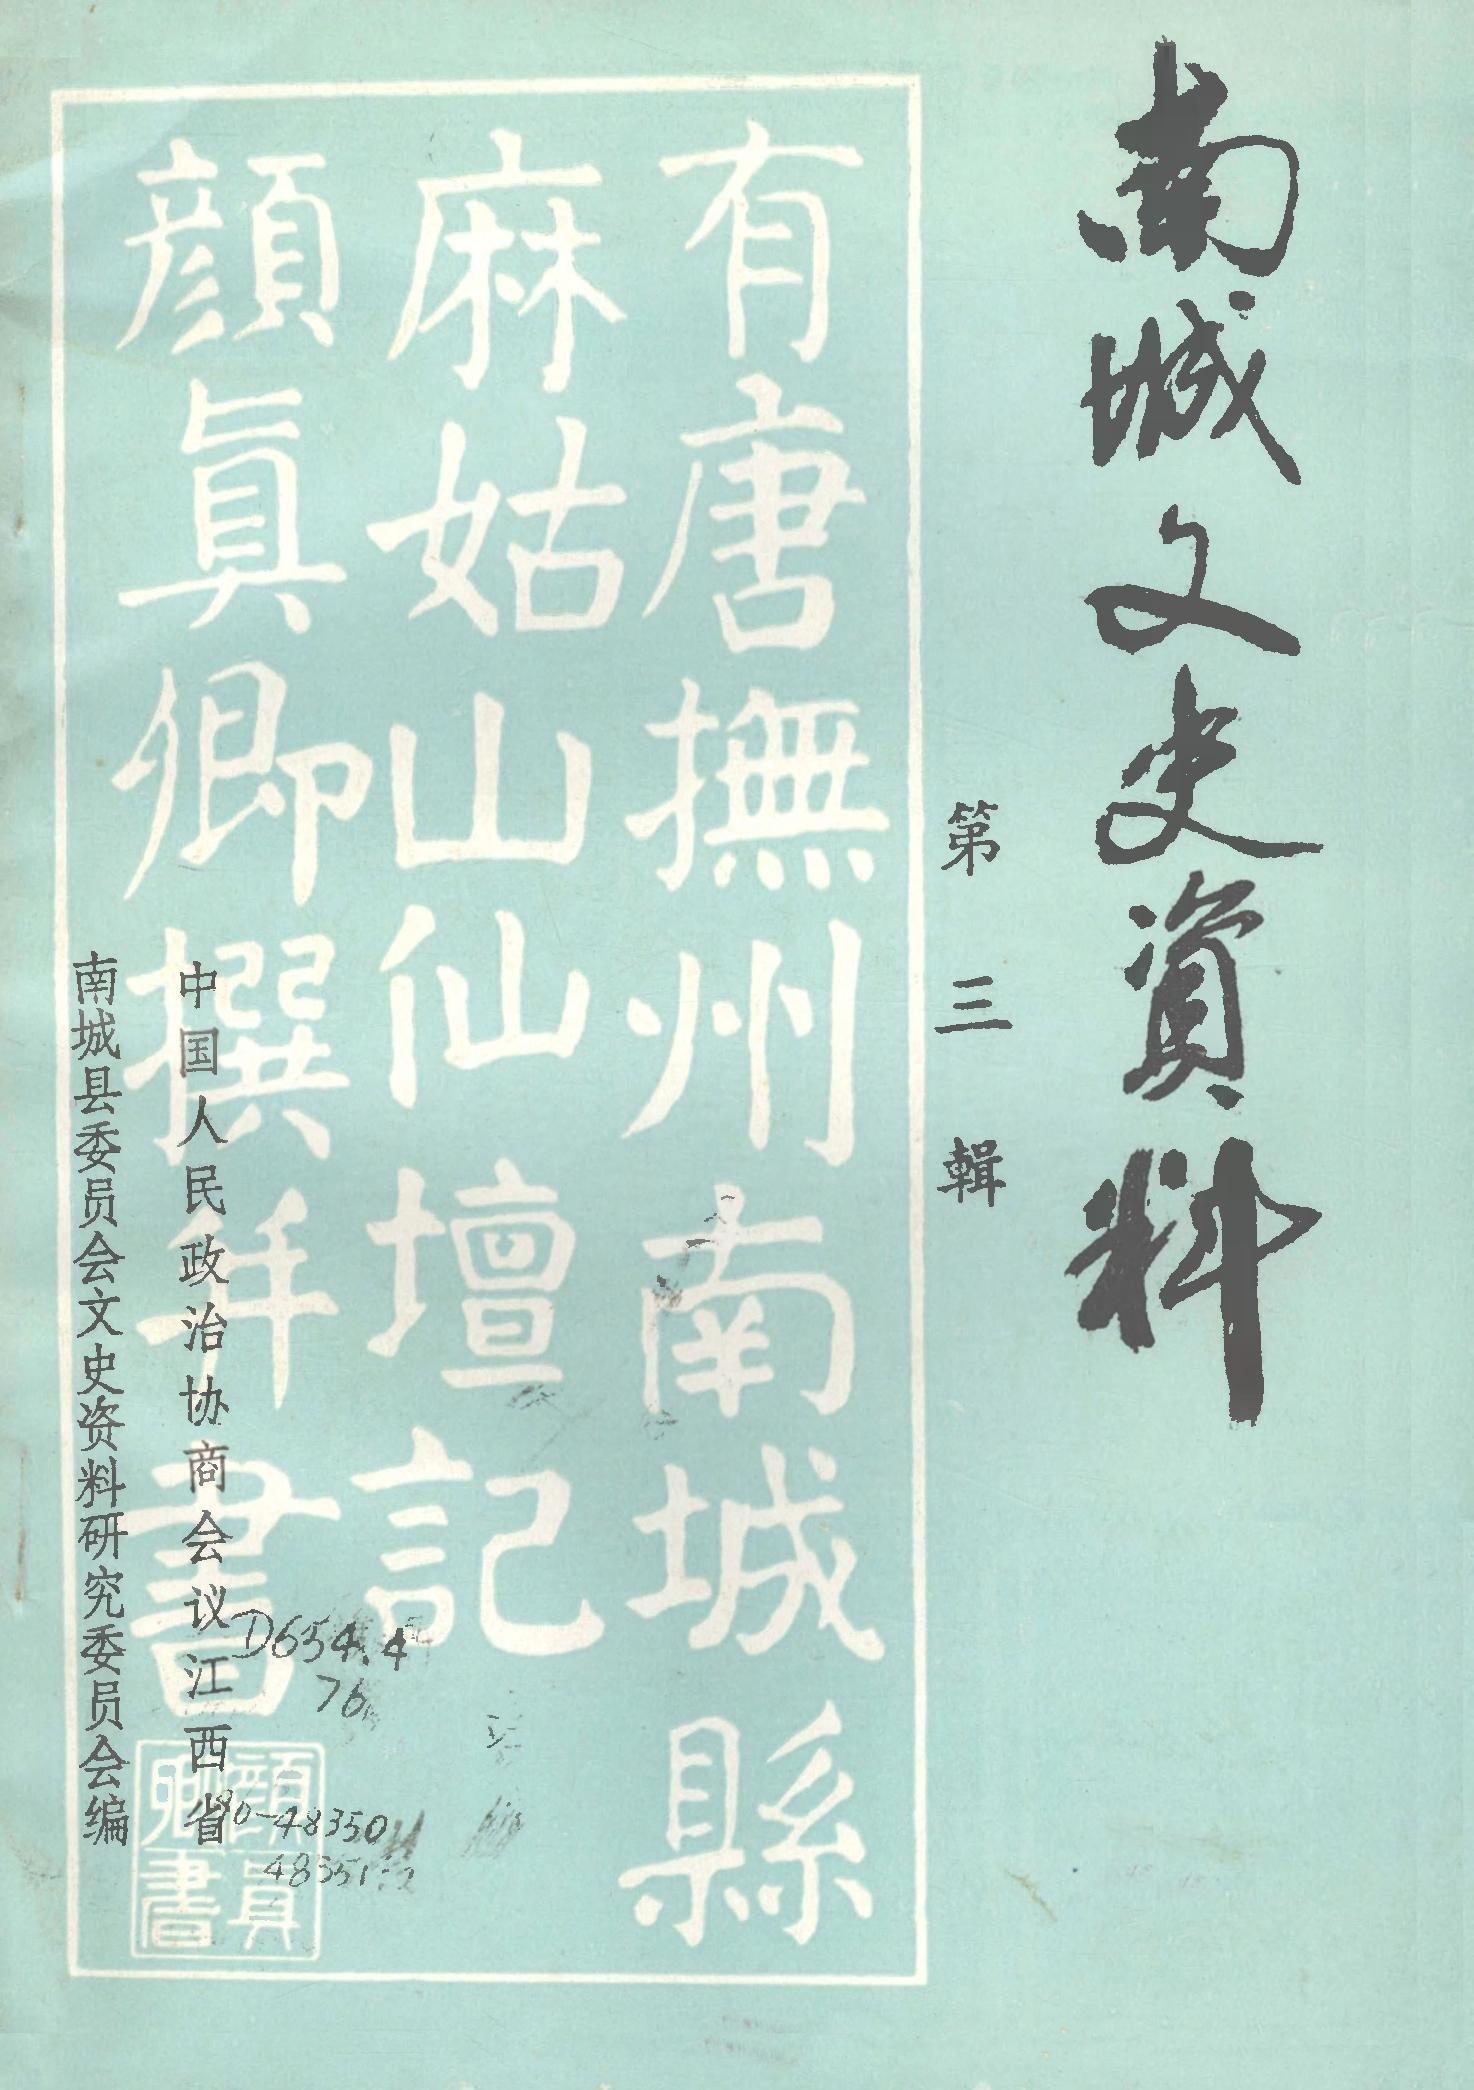 南城文史資料
第三輯
有唐撫州南城縣
麻姑山仙壇記
顔眞卿撰并書
中国人民政治协商会议江西省
南城县委员会文史资料研究委员会编
D654.4
76
80-48350
48351:2
顔眞
卿書